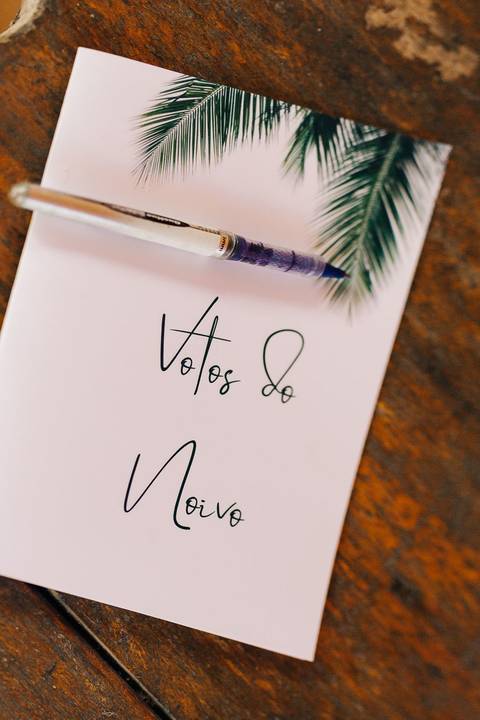 Votos do
Noivo